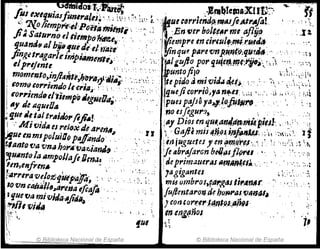 Gomidos I. Parte.
sus exequias funerales:
No siempre el Poeta miente
si à Saturno el tiempo haze,
quando al hijo que de el nace
finge tragarle impiamente,
el presente
momento, instante, hora, y dia,
como corriendo le cria,
corriendo el tiempo deguella,
ay de aquella
que de tal traidor se fia!
Mi vida es relox de arena,
que en mis polvillo passando
tanto va vna hora vaciando
quanto la ampolla se llena:
sen, enfrena
carrera veloz que passa,
en caualla, arena escasa
que va mi vida asida,
vida
que
Emblema XII.
que corriendo mas se atrasa!
En ver boltear me aflijo
siempre en circulo mi rueda
sin que pare vn punto, queda
al gusto por quien me rijo,
punto fijo
le pido à mi vida
que si corriò, ya no es
pues passò ya, y lo futuro
no es seguro,
ay Dios en que andan mis pies!
Gastè mis años infantes
en juguetes y en amores
se abrasaron bellas flores
de primaueras amantes,
ya gigantes
mis ombros, cargas tiranas
sustentaron de honras vanas,
en engaños
12
© Biblioteca Nacional de España
© Biblioteca Nacional de España